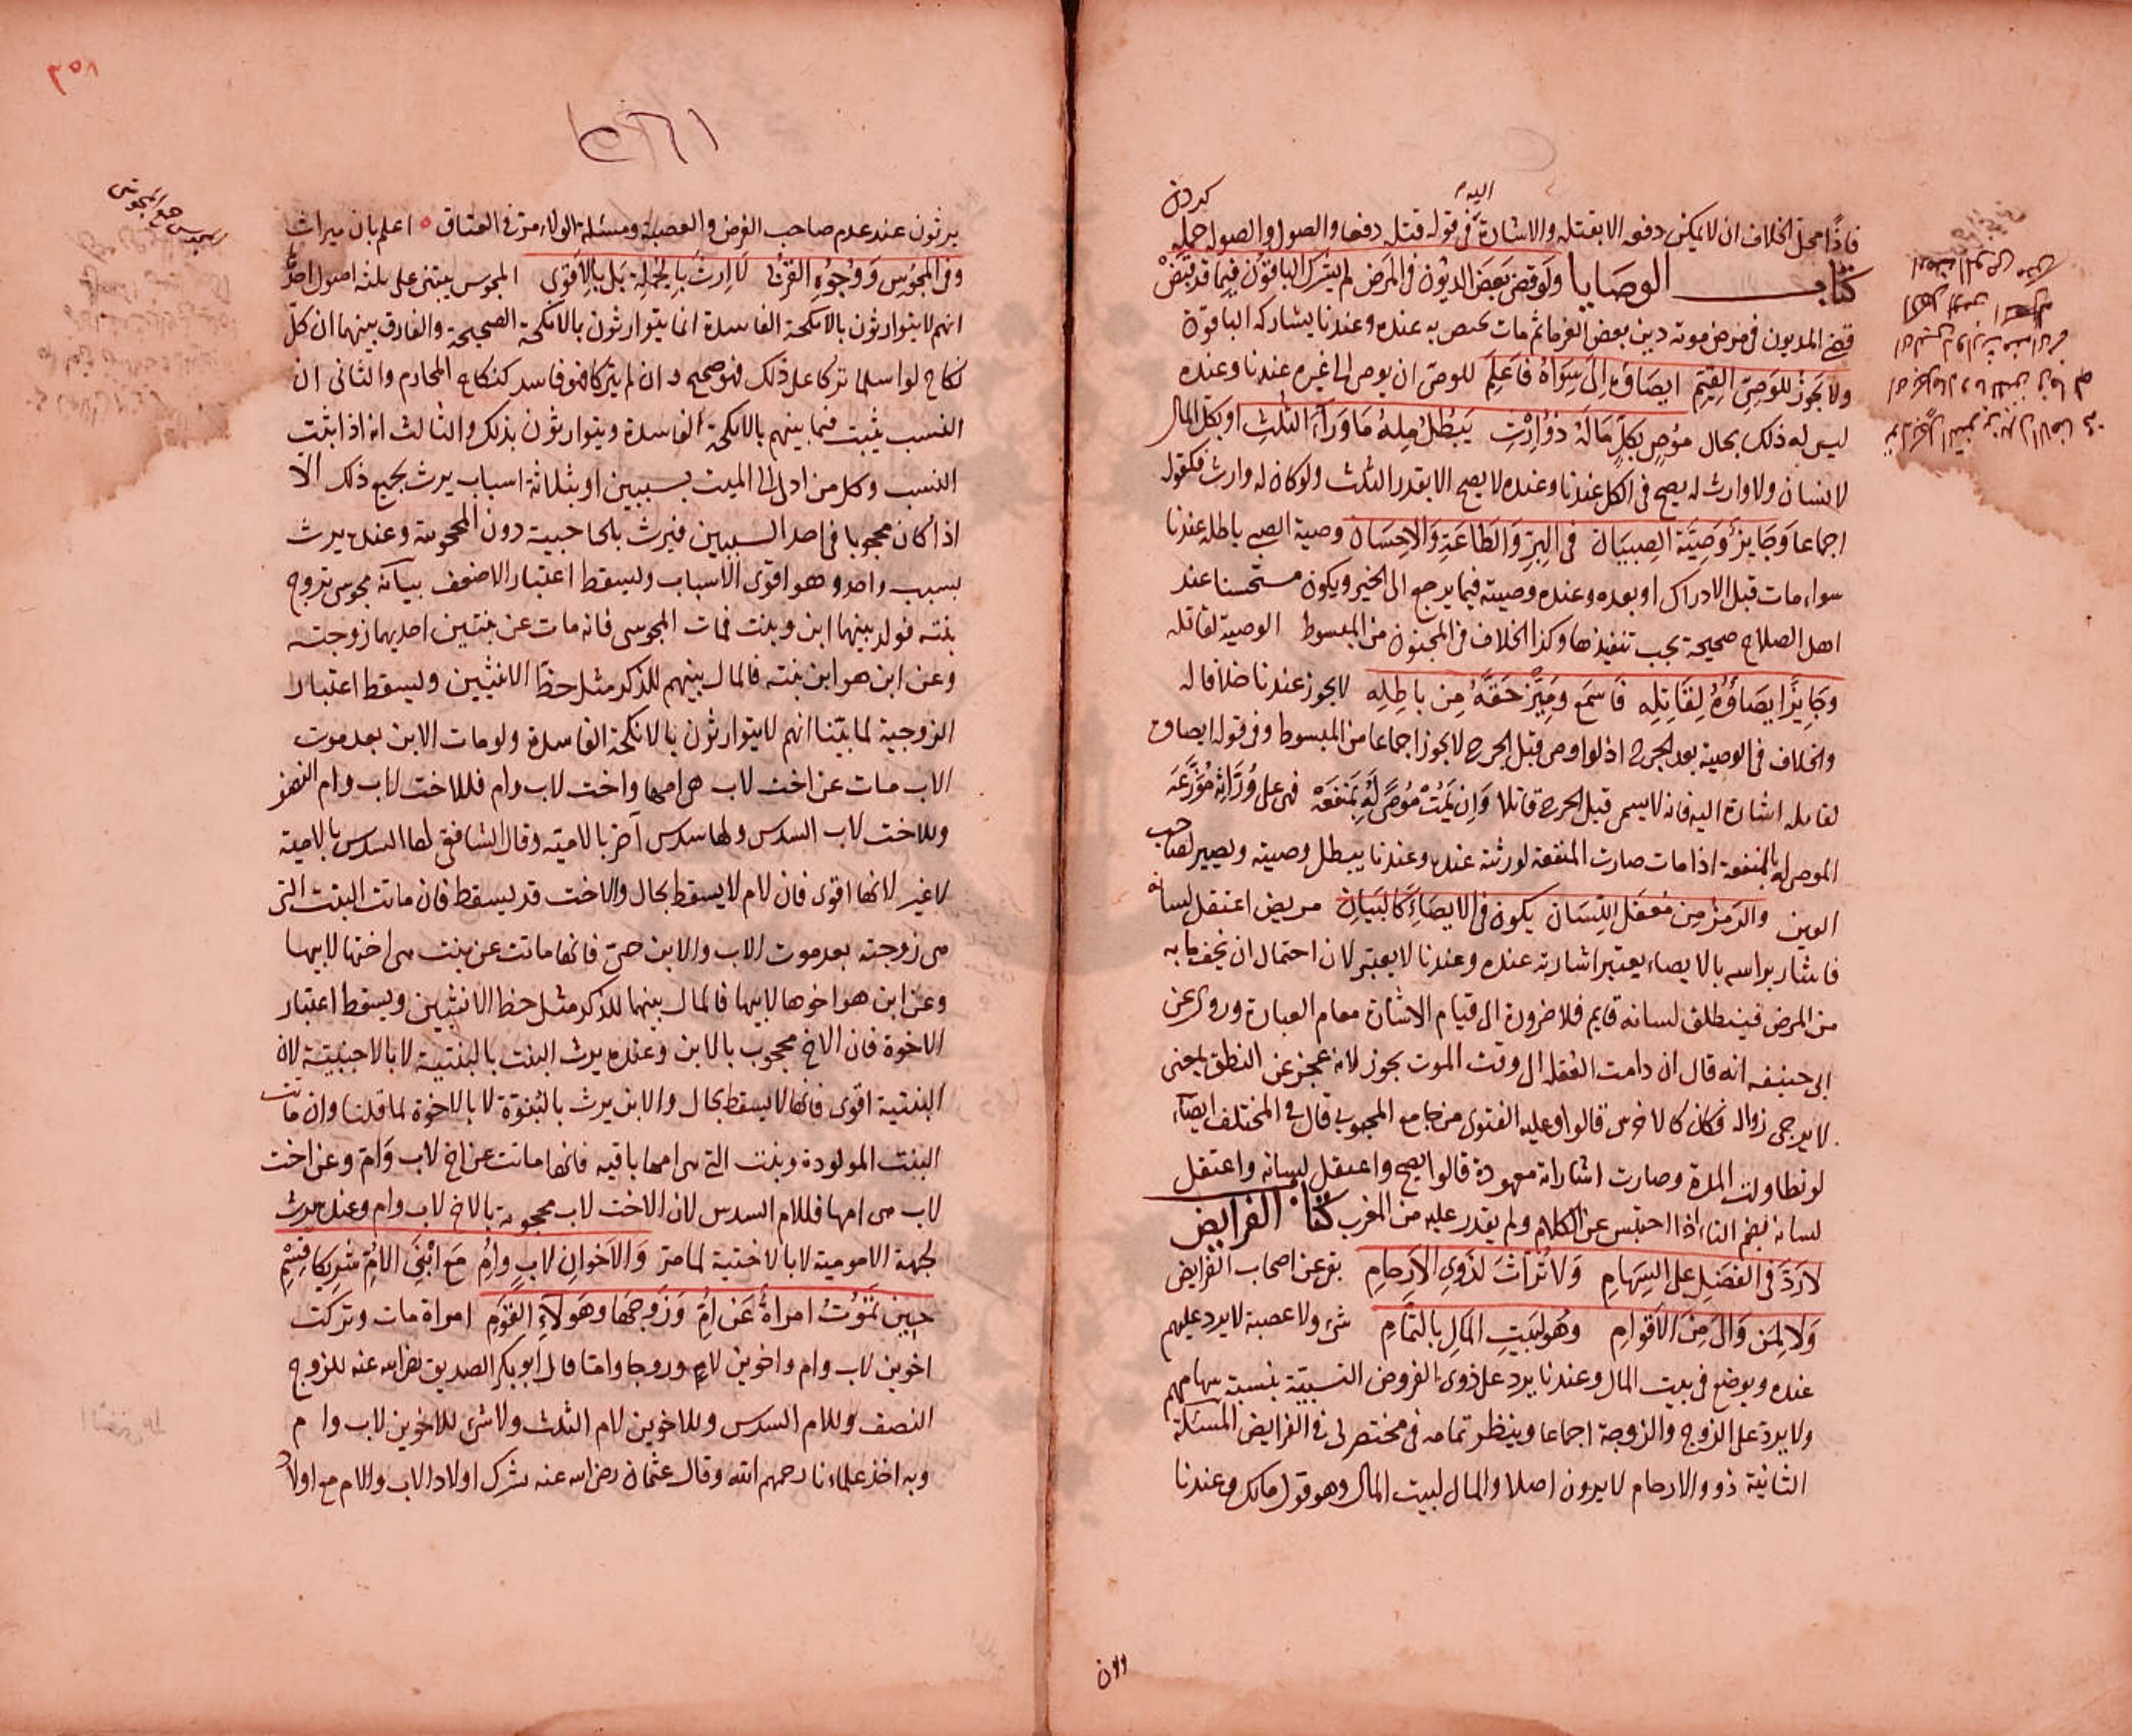 فاذا محل الخلاف ان لا يمكن دفعه الا بقتله والاشارة في قوله قتله دفعا والصول والصوله حمله
كردن
اليه
كتاب الوصايا ولو قضى بعض الديون في المرض لم يشرك الباقون فيما قد قبض
قضى المديون في مرض موته دين بعض الغرما ثم مات يختص به عنده وعندنا يشاركه الباقون
ولا يجوز للوصي القيم ايصاؤه الى سواه فاعلم للوصي ان يوصي الى غيره عندنا وعنده
ليس له ذلك بحال موص بكل ماله ذو ارث يبطل منه ما وراء الثلث او بكل المال
لانسان ولا وارث له يصح في الكل عندنا وعنده لا يصح الا بقدر الثلث ولو كان له وارث فكقوله
اجماعا وجايز وصية الصبيان في البر والطاعة والاحسان وصية الصبي باطلة عندنا
سواء مات قبل الادراك او بعده وعنده وصيته فيما يرجع الى الخير ويكون مستحسنا عند
اهل الصلاح صحيحة يجب تنفيذها وكذا الخلاف في المجنون من المبسوط الوصية لقاتله
وجايز ايصاؤه لقاتله فاسمع وميز حقه من باطله لا يجوز عندنا خلافا له
والخلاف في الوصية بعد الجرح اذ لو اوصى قبل الجرح لا يجوز اجماعا من المبسوط وفي قوله ايصاؤه
لقاتله اشارة اليه فانه لا يسمى قبل الجرح قاتلا وان يمت موصى له بمنفعة فهي على وراثه موزعه
الموصى له بالمنفعة اذا مات صارت المنفعة لورثته عنده وعندنا يبطل وصيته ويصير لصاحب
العين والرمز من معتقل اللسان يكون في الايصاء كالبيان مريض اعتقل لسانه
فاشار براسه بالايصاء يعتبر اشارته عنده وعندنا لا يعتبر لان احتمال ان يخف ما به
من المرض فينطلق لسانه قايم فلا ضرورة الى قيام الاشارة مقام العبارة وروي عن
ابي حنيفه انه قال ان دامت العقلة الى وقت الموت يجوز لانه عجز عن النطق بمعنى
لا يرجى زواله فكان كالاخرس قالوا وعليه الفتوى من جامع المحبوبي قال في المختلف ايضا
لو تطاولت المدة وصارت اشاراته معهودة قالوا يصح واعتقل لسانه واعتقل
لسانه بضم التاء اذا احتبس عن الكلام ولم يقدر عليه من المغرب كتاب الفرايض
لا رد في الفضل على السهام ولا تراث لذوي الارحام بقي عن اصحاب الفرايض
ولا لمن والى من الاقوام وهو لبيت المال بالتمام شئ ولا عصبة لا يرد عليهم
عنده ويوضع في بيت المال وعندنا يرد على ذوي الفروض النسبية بنسبة سهامهم
ولا يرد على الزوج والزوجة اجماعا وينظر تمامه في مختصر لي في الفرايض المسئلة
الثانية ذوو الارحام لا يرثون اصلا والمال لبيت المال وهو قول مالك وعندنا
٣٥٨
يرثون عند عدم صاحب الفرض والعصبة ومسئلة الولاء مرت في العتاق اعلم بان ميراث
وفي المجوس ووجوه القربى لا ارث بالجملة بل بالاقوى المجوس يبتنى على ثلثة اصول احدها
انهم لا يتوارثون بالانكحة الفاسدة انما يتوارثون بالانكحة الصحيحة والفارق بينهما ان كل
نكاح لو اسلما تركا على ذلك فهو صحيح وان لم يتركا فهو فاسد كنكاح المحارم والثاني ان
النسب يثبت فيما بينهم بالانكحة الفاسدة ويتوارثون بذلك والثالث انه اذا ثبت
النسب وكل من ادلى الى الميت بسببين او بثلاثة اسباب يرث بجميع ذلك الا
اذا كان محجوبا في احد السببين فيرث بالحاجبية دون المحجوبة وعنده يرث
بسبب واحد وهو اقوى الاسباب ويسقط اعتبار الاضعف بيانه مجوسي تزوج
بنته فولد بينهما ابن وبنت فمات المجوسي فانه مات عن بنتين احديهما زوجته
وعن ابن هو ابن بنته فالمال بينهم للذكر مثل حظ الانثيين ويسقط اعتبار
الزوجية لما بينا انهم لا يتوارثون بالانكحة الفاسدة ولو مات الابن بعد موت
الاب مات عن اخت لاب هي امها واخت لاب وام فللاخت لاب وام النصف
وللاخت لاب السدس ولها سدس آخر بالامية وقال الشافعي لها السدس بالامية
لا غير لانها اقوى فان الام لا يسقط بحال والاخت قد يسقط فان ماتت البنت التي
هي زوجته بعد موت الاب والابن حي فانها ماتت عن بنت هي اختها لابيها
وعن ابن هو اخوها لابيها فالمال بينهما للذكر مثل حظ الانثيين ويسقط اعتبار
الاخوة فان الاخ محجوب بالابن وعنده يرث البنت بالبنتية لا بالاجنبية لان
البنتية اقوى فانها لا يسقط بحال والابن يرث بالبنوة لا بالاخوة لما قلنا وان ماتت
البنت المولودة وبنت التي هي امها باقيه فانها ماتت عن اخ لاب وام وعن اخت
لاب هي امها فللام السدس لان الاخت لاب محجوبة بالاخ لاب وام وعنده يرث
بجهة الامومية لا بالاختية لما مر والاخوان لاب وام مع ابني الام شريكا قسم
حين تموت امراة عن ام وزوجها وهولاء القوم امراة مات وتركت
اخوين لاب وام واخوين لام وزوجا واما قال ابو بكر الصديق رضي الله عنه للزوج
النصف وللام السدس وللاخوين لام الثلث ولا شئ للاخوين لاب وام
وبه اخذ علماءنا رحمهم الله وقال عثمان رضي الله عنه يشرك اولاد الاب والام مع اولاد